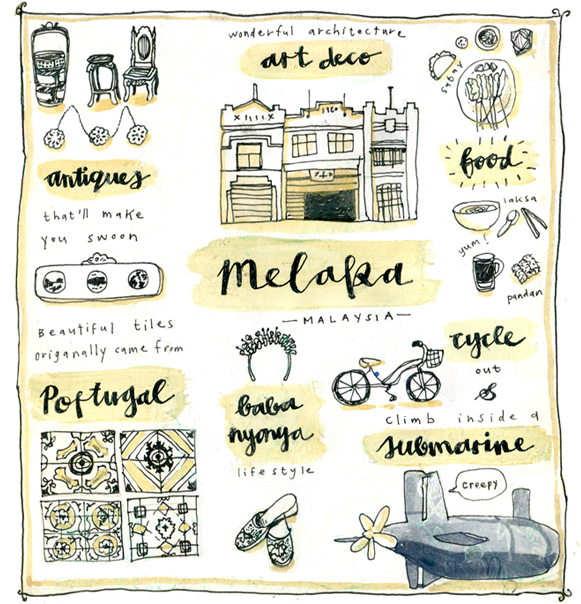 wonderful architecture
art deco
satay
food
laksa
yum!
pandan
antiques
that'll make
you swoon
Melaka
—MALAYSIA—
Beautiful tiles
origanally came from
Portugal
baba
nyonya
lifestyle
cycle
out
&
climb inside a
submarine
creepy